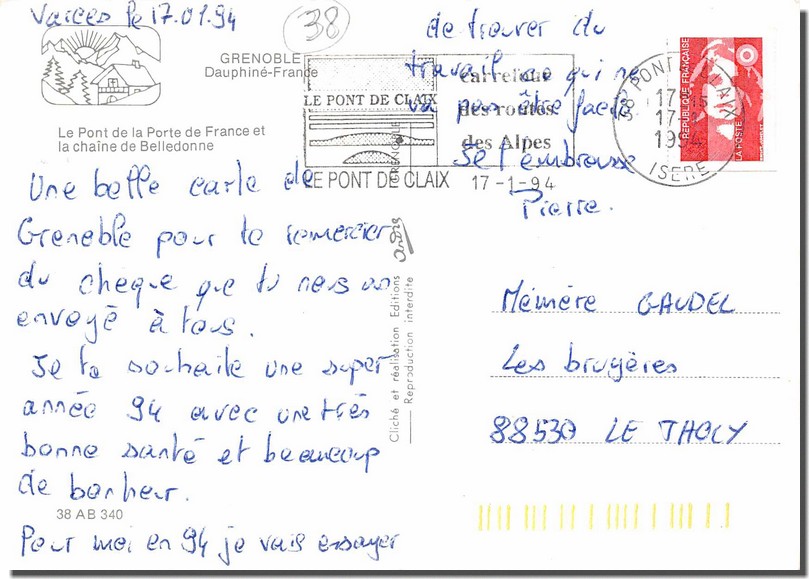 Varces le 17.01.94
38
GRENOBLE
Dauphiné-France
Le Pont de la Porte de France et
la chaîne de Belledonne
Une belle carte de
Grenoble pour te remercier
du cheque que tu nous as
envoyé à tous.
Je te souhaite une super
année 94 avec une très
bonne santé et beaucoup
de bonheur.
38 AB 340
Pour moi en 94 je vais essayer
de trouver du
travail ce qui ne
va pas être facile
Je t'embrasse
Pierre.
LE PONT DE CLAIX
carrefour
des routes
des Alpes
LE PONT DE CLAIX 17-1-94
38 PONT DE CLAIX
17
17-1
1994
ISERE
REPUBLIQUE FRANÇAISE
LA POSTE
GRENOBLE
Cliché et réalisation Editions
andré
Reproduction interdite
Mémère GAUDEL
Les bruyères
88530 LE THOLY